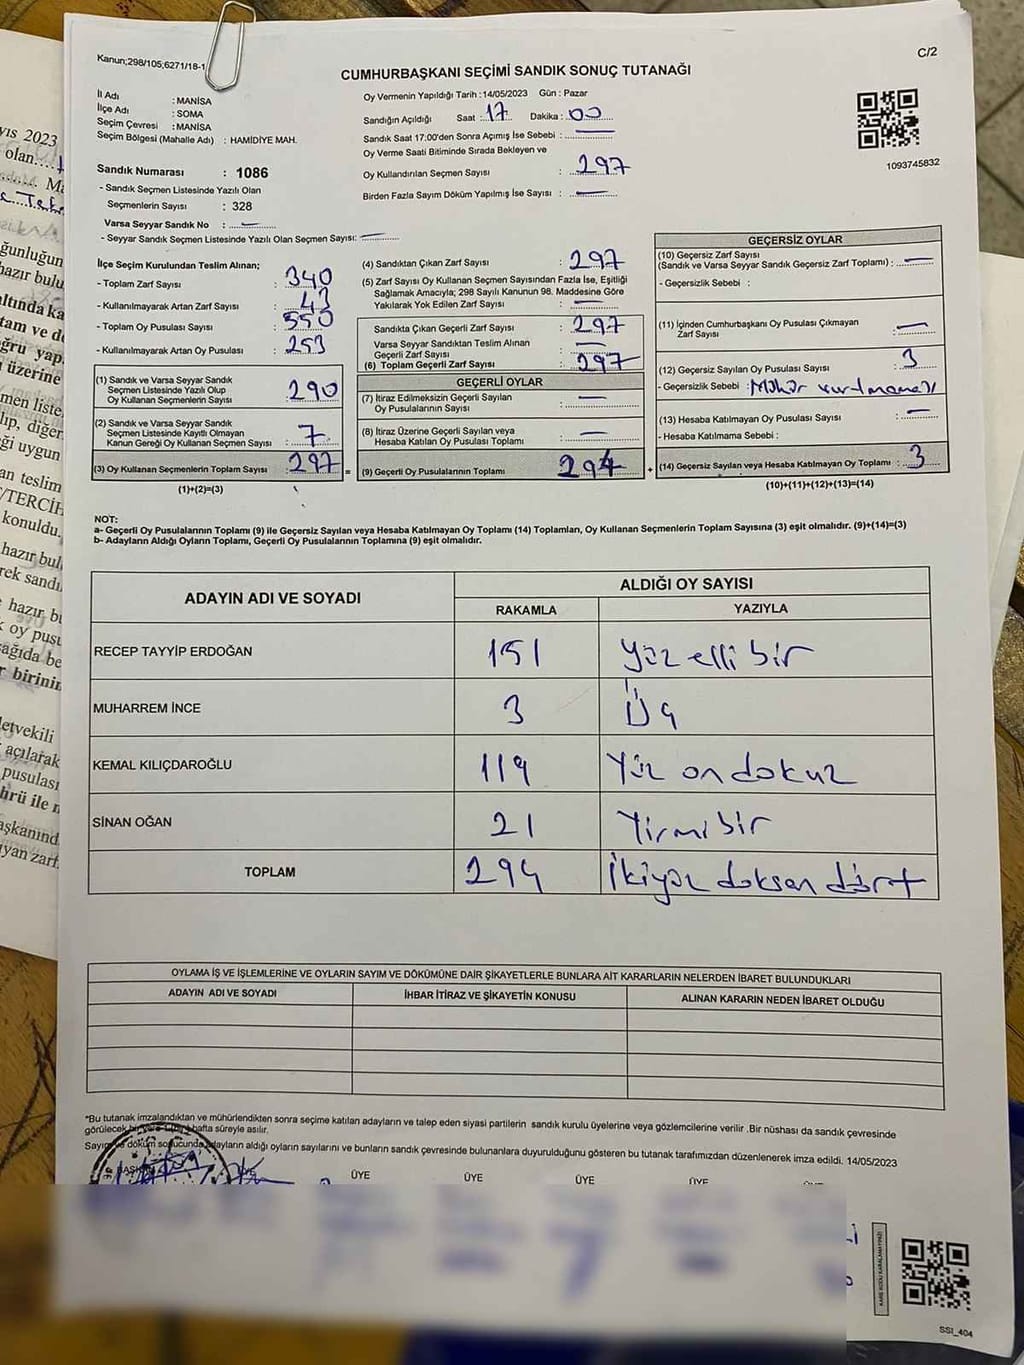 Kanun;298/105;6271/18-1
C/2
CUMHURBAŞKANI SEÇİMİ SANDIK SONUÇ TUTANAĞI
İl Adı : MANİSA
İlçe Adı : SOMA
Seçim Çevresi : MANİSA
Seçim Bölgesi (Mahalle Adı) : HAMİDİYE MAH.
Oy Vermenin Yapıldığı Tarih :14/05/2023 Gün : Pazar
Sandığın Açıldığı Saat : 17 Dakika : 00
Sandık Saat 17:00'den Sonra Açımış İse Sebebi : —
Oy Verme Saati Bitiminde Sırada Bekleyen ve
Oy Kullandırılan Seçmen Sayısı : 297
Birden Fazla Sayım Döküm Yapılmış İse Sayısı : —
1093745832
Sandık Numarası : 1086
- Sandık Seçmen Listesinde Yazılı Olan
Seçmenlerin Sayısı : 328
Varsa Seyyar Sandık No : —
- Seyyar Sandık Seçmen Listesinde Yazılı Olan Seçmen Sayısı: —
İlçe Seçim Kurulundan Teslim Alınan;
- Toplam Zarf Sayısı : 340
- Kullanılmayarak Artan Zarf Sayısı : 43
- Toplam Oy Pusulası Sayısı : 550
- Kullanılmayarak Artan Oy Pusulası : 253
(1) Sandık ve Varsa Seyyar Sandık
Seçmen Listesinde Yazılı Olup
Oy Kullanan Seçmenlerin Sayısı : 290
(2) Sandık ve Varsa Seyyar Sandık
Seçmen Listesinde Kayıtlı Olmayan
Kanun Gereği Oy Kullanan Seçmen Sayısı : 7
(3) Oy Kullanan Seçmenlerin Toplam Sayısı : 297 =
(1)+(2)=(3)
(4) Sandıktan Çıkan Zarf Sayısı : 297
(5) Zarf Sayısı Oy Kullanan Seçmen Sayısından Fazla İse, Eşitliği
Sağlamak Amacıyla; 298 Sayılı Kanunun 98. Maddesine Göre
Yakılarak Yok Edilen Zarf Sayısı : —
Sandıkta Çıkan Geçerli Zarf Sayısı : 297
Varsa Seyyar Sandıktan Teslim Alınan
Geçerli Zarf Sayısı : —
(6) Toplam Geçerli Zarf Sayısı : 297
GEÇERLİ OYLAR
(7) İtiraz Edilmeksizin Geçerli Sayılan
Oy Pusulalarının Sayısı : —
(8) İtiraz Üzerine Geçerli Sayılan veya
Hesaba Katılan Oy Pusulası Toplamı : —
(9) Geçerli Oy Pusulalarının Toplamı : 294 +
GEÇERSİZ OYLAR
(10) Geçersiz Zarf Sayısı
(Sandık ve Varsa Seyyar Sandık Geçersiz Zarf Toplamı) : —
- Geçersizlik Sebebi :
(11) İçinden Cumhurbaşkanı Oy Pusulası Çıkmayan
Zarf Sayısı : —
(12) Geçersiz Sayılan Oy Pusulası Sayısı : 3
- Geçersizlik Sebebi : Mühür vurulmaması
(13) Hesaba Katılmayan Oy Pusulası Sayısı : —
- Hesaba Katılmama Sebebi :
(14) Geçersiz Sayılan veya Hesaba Katılmayan Oy Toplamı : 3
(10)+(11)+(12)+(13)=(14)
NOT:
a- Geçerli Oy Pusulalarının Toplamı (9) ile Geçersiz Sayılan veya Hesaba Katılmayan Oy Toplamı (14) Toplamları, Oy Kullanan Seçmenlerin Toplam Sayısına (3) eşit olmalıdır. (9)+(14)=(3)
b- Adayların Aldığı Oyların Toplamı, Geçerli Oy Pusulalarının Toplamına (9) eşit olmalıdır.
ADAYIN ADI VE SOYADI
ALDIĞI OY SAYISI
RAKAMLA YAZIYLA
RECEP TAYYİP ERDOĞAN 151 Yüz elli bir
MUHARREM İNCE 3 Üç
KEMAL KILIÇDAROĞLU 119 Yüz on dokuz
SİNAN OĞAN 21 Yirmi bir
TOPLAM 294 İkiyüz doksan dört
OYLAMA İŞ VE İŞLEMLERİNE VE OYLARIN SAYIM VE DÖKÜMÜNE DAİR ŞİKAYETLERLE BUNLARA AİT KARARLARIN NELERDEN İBARET BULUNDUKLARI
ADAYIN ADI VE SOYADI İHBAR İTİRAZ VE ŞİKAYETİN KONUSU ALINAN KARARIN NEDEN İBARET OLDUĞU
*Bu tutanak imzalandıktan ve mühürlendikten sonra seçime katılan adayların ve talep eden siyasi partilerin sandık kurulu üyelerine veya gözlemcilerine verilir .Bir nüshası da sandık çevresinde
görülecek bir yere 1 (bir) hafta süreyle asılır.
Sayım ve döküm sonucunda adayların aldığı oyların sayılarını ve bunların sandık çevresinde bulunanlara duyurulduğunu gösteren bu tutanak tarafımızdan düzenlenerek imza edildi. 14/05/2023
BAŞKAN ÜYE ÜYE ÜYE ÜYE
SSİ_404